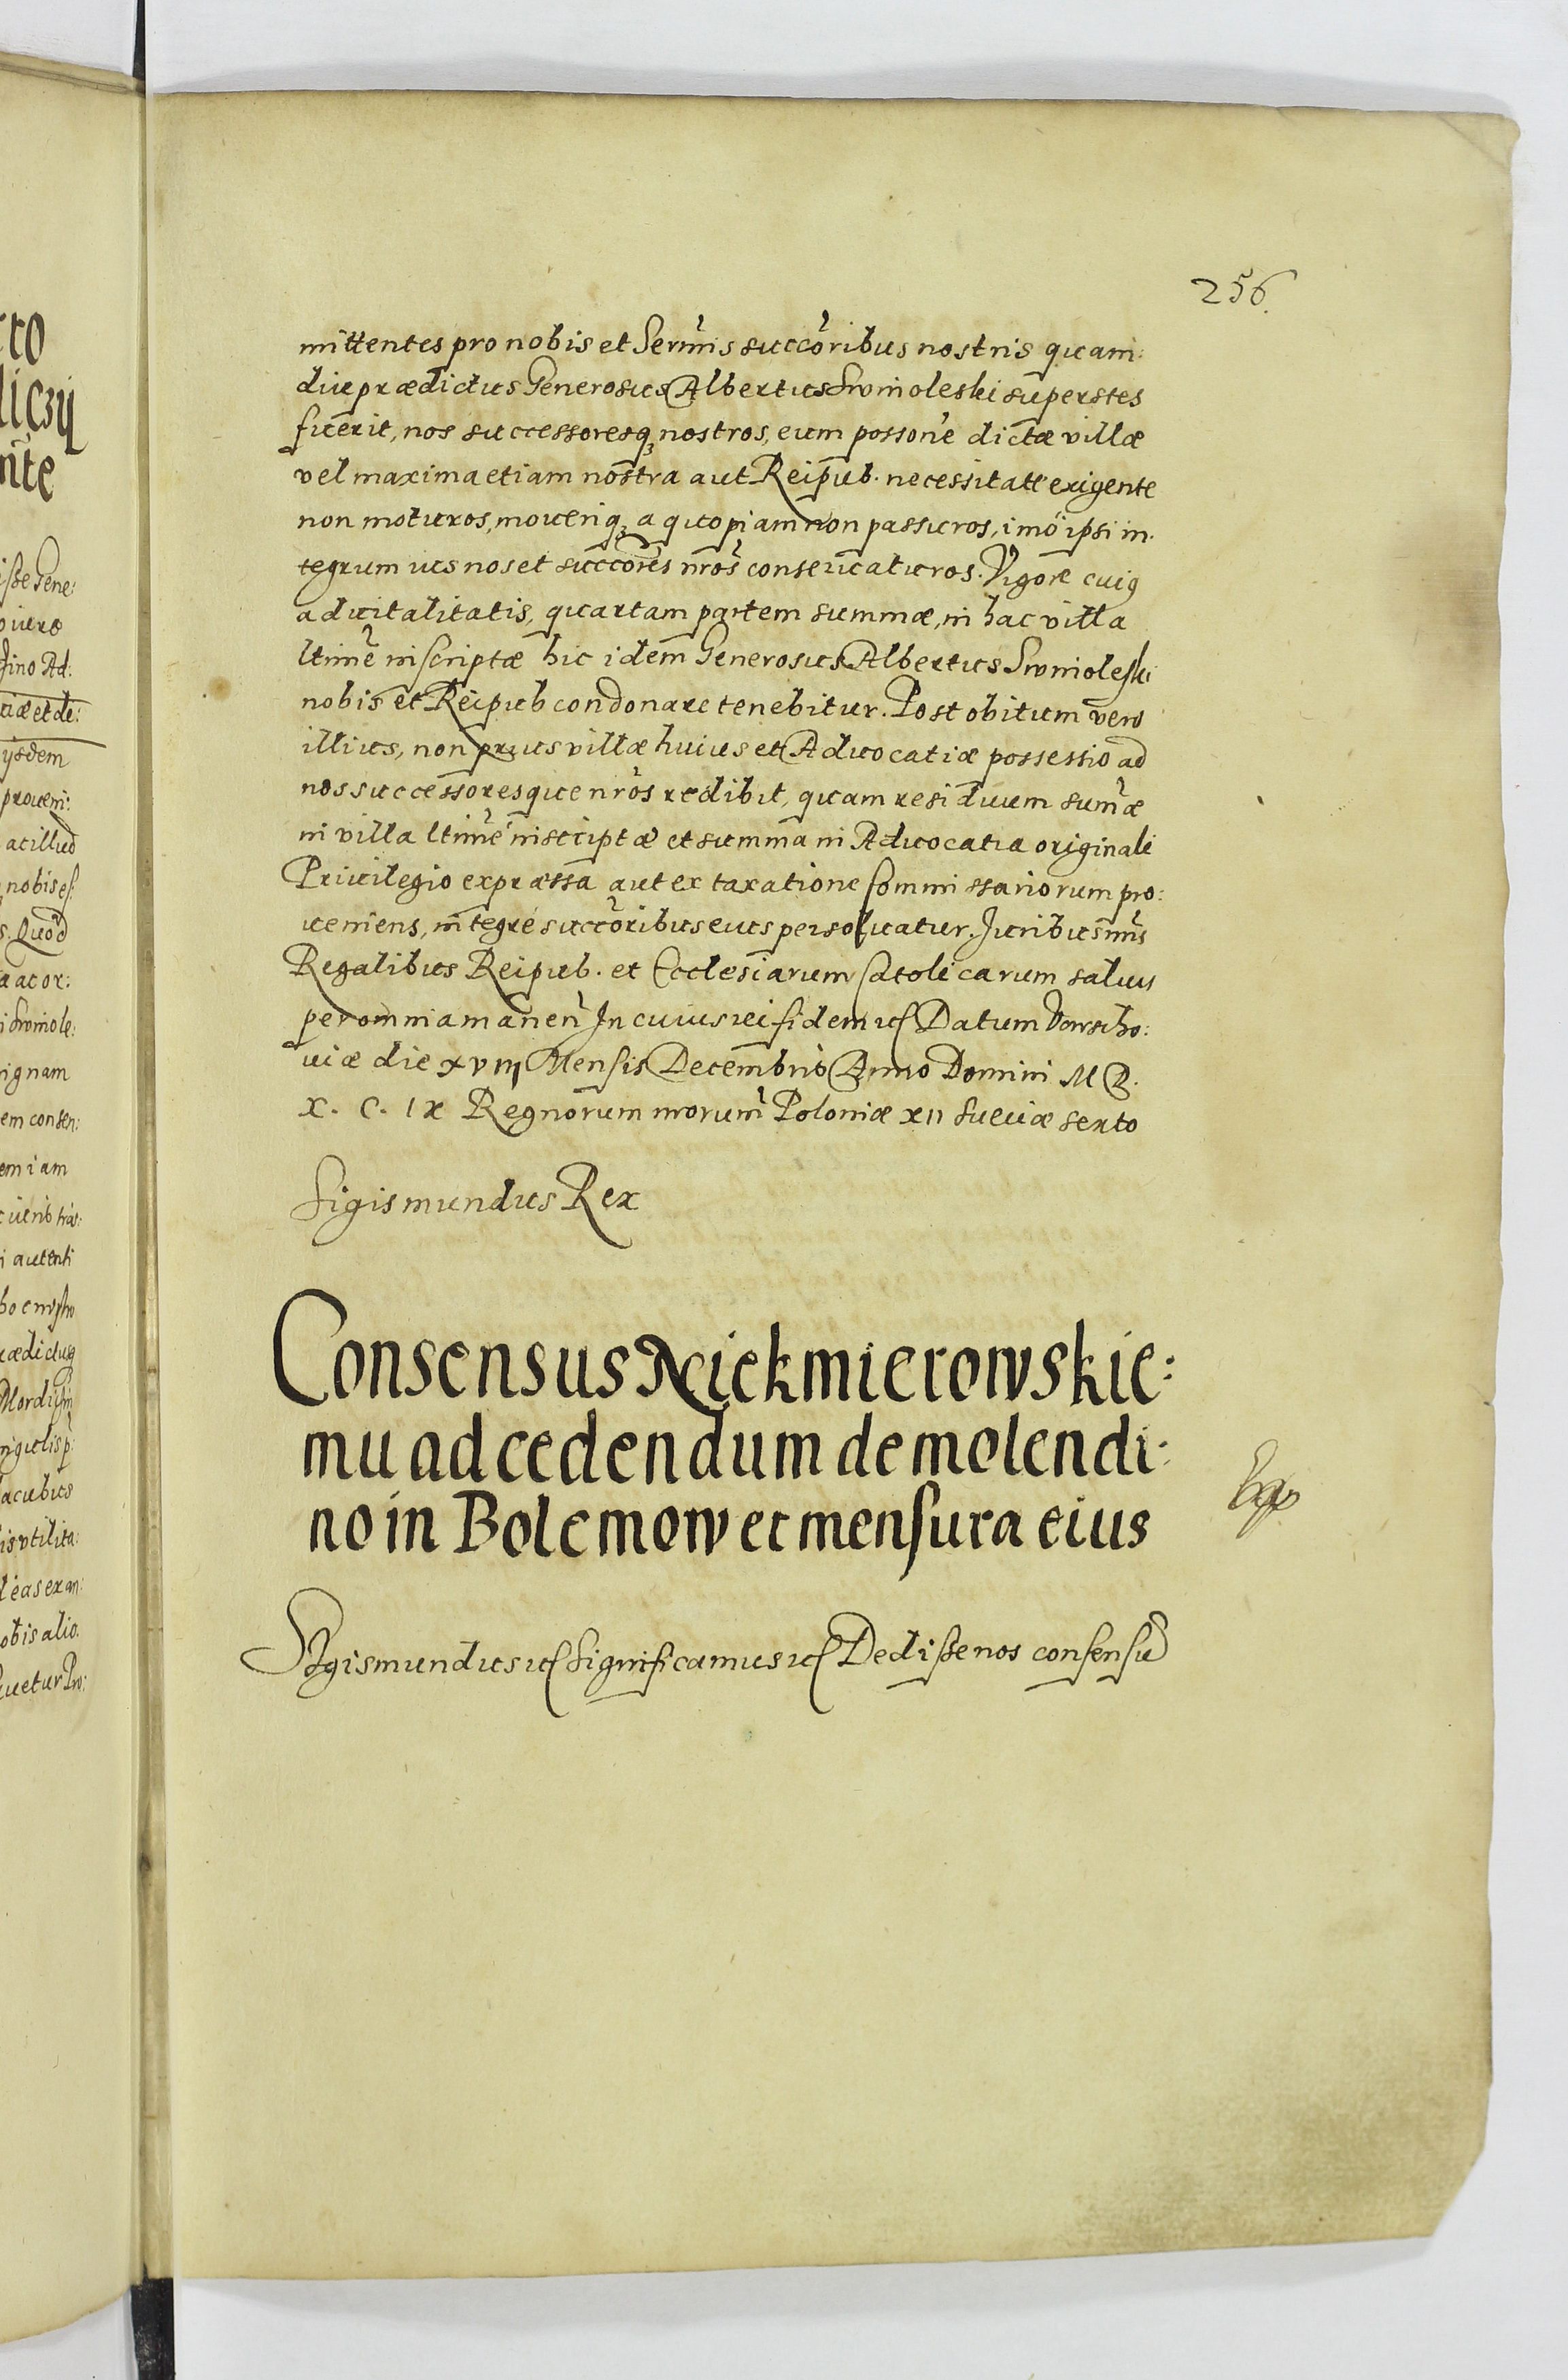 256.
mittentes pro nobis et Sermis succoribus nostris quam:
diu prædictus Generosus Albertus Smoleski superstes
fuerit, nos successoresq nostros, eum possone dictæ villæ
vel maxima etiam nostra aut Reipub. necessitate exigente
non moturos, moueriq a quopiam non passuros, imo ipsi in.
tegrum ius nos et succores nros conseruaturos. Vigore cuiq
aduitalitatis, quartam partem summæ, in hac villa
ltime inscriptæ hic idem Generosus Albertus
nobis et Reipub condonare tenebitur. Post obitum vero
illius, non prius villæ huius et Aduocatiæ possessio ad
nos successoresque nros redibit, quam residuum sumæ
in villa ltime inscriptæ et summa in Aduocatia originali
Priuilegio expræssa aut ex taxatione Commissariorum pro:
ueniens, integre succoribus eius persoluatur. Juribus nris
Regalibus Reipub. et Ecclesiarum Catolicarum saluis
per omnia manen In cuius rei fidem Datum Varscho:
uiæ die xviij Mensis Decembris Anno Domini M D.
X. C. IX Regnorum nrorum Poloniæ xij Sueciæ sexto
Sigismundus Rex
Consensus Niekmierowskie:
mu ad cedendum de molendi:
no in Bolemow et mensura eius
Sigismundus Significamus Dedisse nos consensu
tto
liczÿ
nte
isse Gene:
fino Ad:
tiæ et de:
ysdem
proueni:
ac illud
nobis es
s. Quod
a ac or:
ignam
em consen:
em iam
i autenti
ædictus
ngulis p
acubus
is vtilita:
obis alio.
uetur Pro: